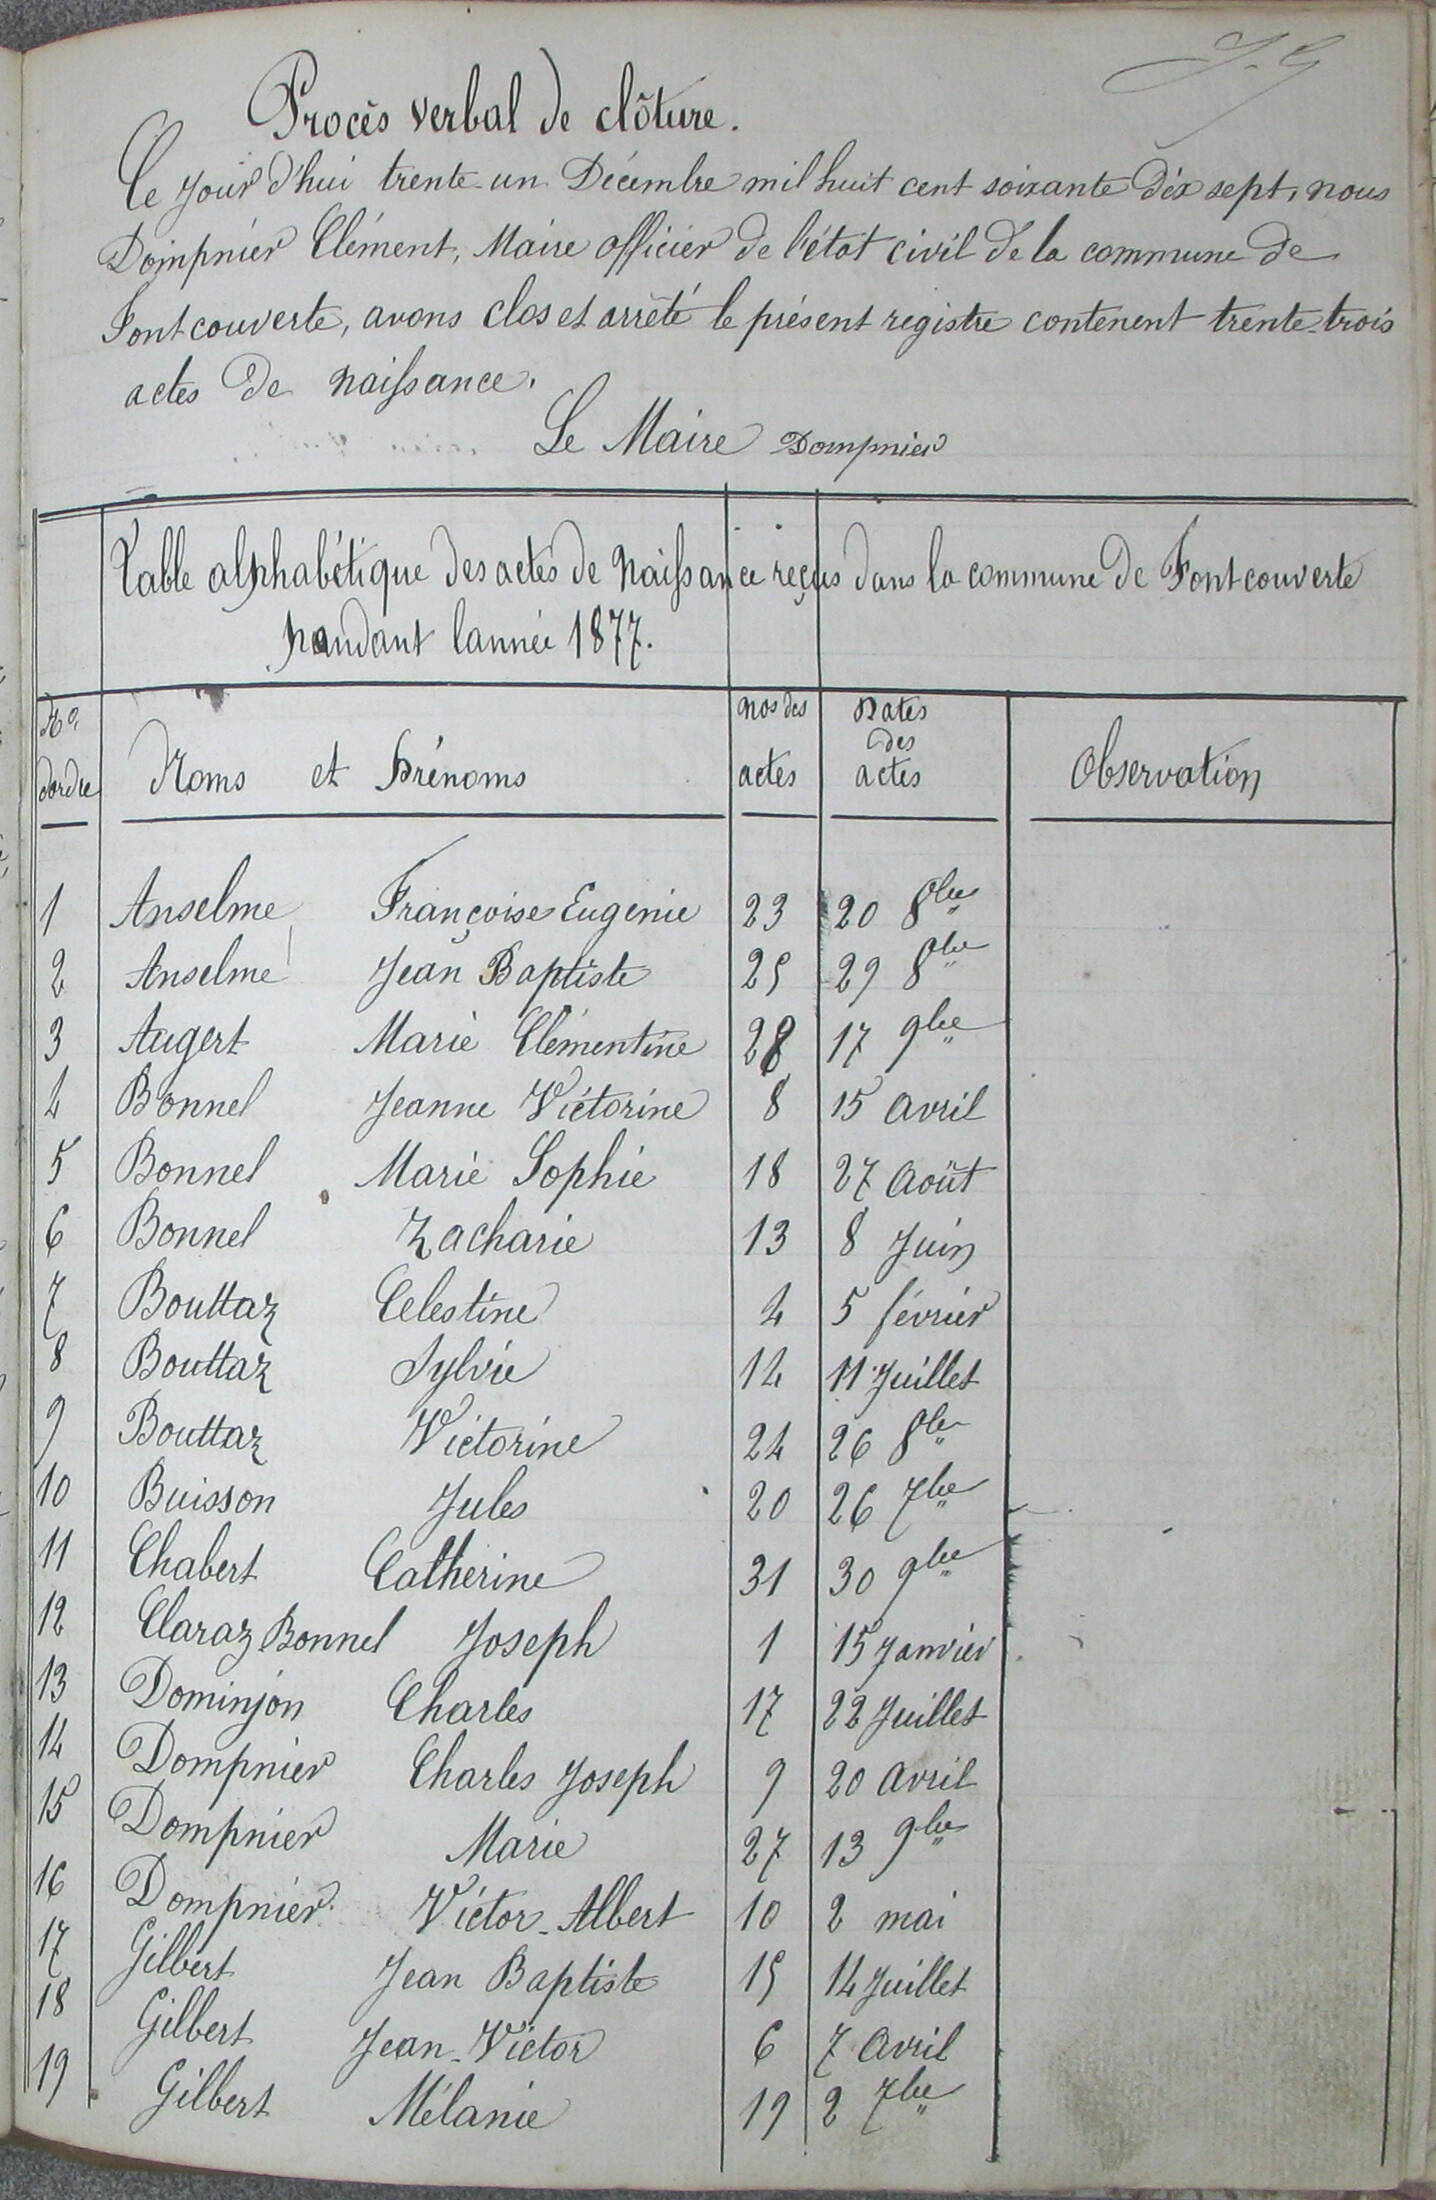 J-G
Procès verbal de clôture.
Ce jour d'hui trente-un Décembre mil huit cent soixante dix sept, nous
Dompnier Clément, Maire officier de l'état civil de la commune de
Fontcouverte, avons clos et arrêté le présent registre contenent trente-trois
actes de naissance.
Le Maire Dompnier
Table alphabétique des actes de Naissance reçus dans la commune de Fontcouverte
pandant lannée 1877.
No. dordre Noms et Prénoms nos des actes Dates des actes Observation
1 Anselme Françoise Eugenie 23 20 8bre
2 Anselme Jean Baptiste 25 29 8bre
3 Augert Marie Clémentine 28 17 9bre
4 Bonnel Jeanne Victorine 8 15 avril
5 Bonnel Marie Sophie 18 27 Août
6 Bonnel Zacharie 13 8 Juin
7 Bouttaz Celestine 4 5 février
8 Bouttaz Sylvie 14 11 Juillet
9 Bouttaz Victorine 24 26 8bre
10 Buisson Jules 20 26 7bre
11 Chabert Catherine 31 30 9bre
12 Claraz Bonnel Joseph 1 15 Janvier
13 Dominjon Charles 17 22 Juillet
14 Dompnier Charles Joseph 9 20 avril
15 Dompnier Marie 27 13 9bre
16 Dompnier Victor-Albert 10 2 mai
17 Gilbert Jean Baptiste 15 14 Juillet
18 Gilbert Jean-Victor 6 7 avril
19 Gilbert Mélanie 19 2 7bre